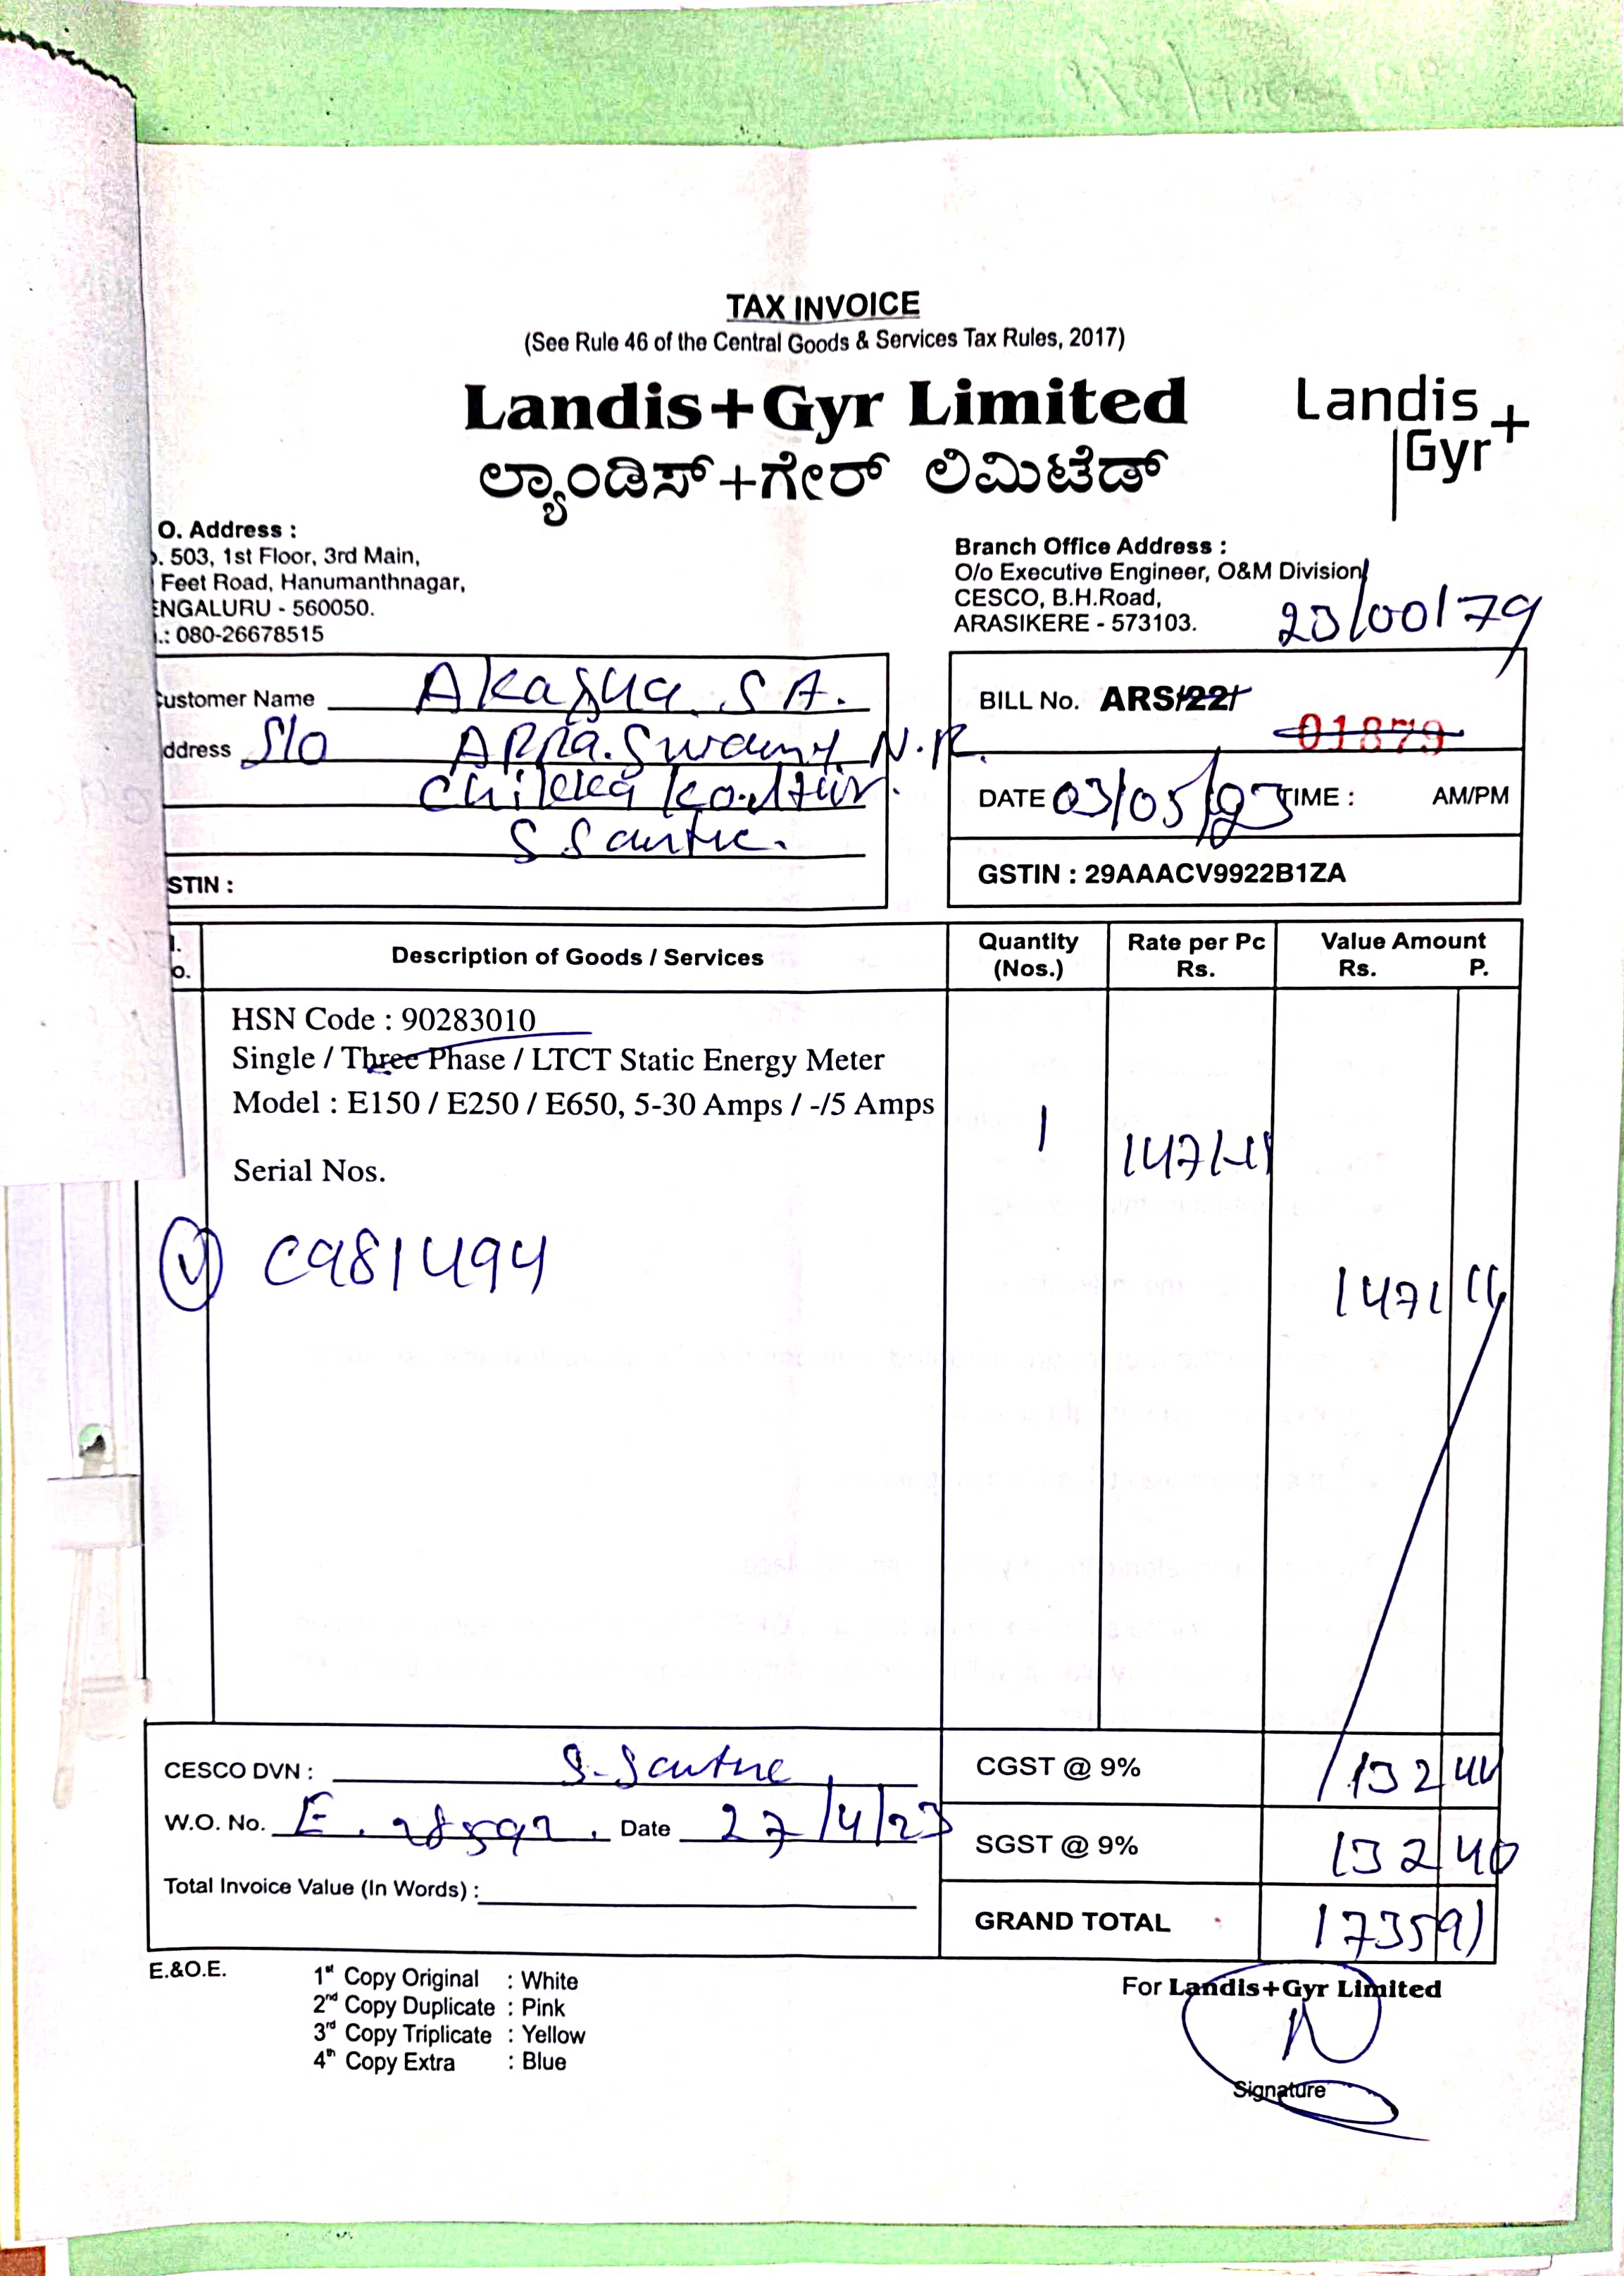 TAX INVOICE
(See Rule 46 of the Central Goods & Services Tax Rules, 2017)
Landis+Gyr Limited
ಲ್ಯಾಂಡಿಸ್+ಗೇರ್ ಲಿಮಿಟೆಡ್
Landis
Gyr+
O. Address :
. 503, 1st Floor, 3rd Main,
Feet Road, Hanumanthnagar,
ENGALURU - 560050.
.: 080-26678515
Branch Office Address :
O/o Executive Engineer, O&M Division
CESCO, B.H.Road,
ARASIKERE - 573103.
23/00179
ustomer Name Akasha S A.
ddress S/o Appa.Swamy N.R.
Chikka
S Santhe.
STIN :
BILL No. ARS/22/
01879
DATE 03/05/23 TIME : AM/PM
GSTIN : 29AAACV9922B1ZA
l. o. Description of Goods / Services Quantity (Nos.) Rate per Pc Rs. Value Amount Rs. P.
HSN Code : 90283010
Single / Three Phase / LTCT Static Energy Meter
Model : E150 / E250 / E650, 5-30 Amps / -/5 Amps
1 1471-11
Serial Nos.
C981494
1471 11
CESCO DVN : S. Santhe
W.O. No. E. Date 27/4/23
Total Invoice Value (In Words) :
CGST @ 9% 132 40
SGST @ 9% 132 40
GRAND TOTAL 1735 91
E.&O.E.
1st Copy Original : White
2nd Copy Duplicate : Pink
3rd Copy Triplicate : Yellow
4th Copy Extra : Blue
For Landis+Gyr Limited
Signature